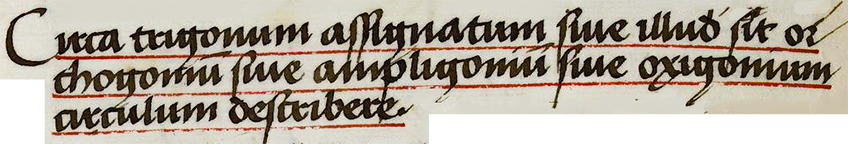 Circa trigonum assignatum siue illud sit or
thogoniū siue ampligoniū siue oxigonium
circulum describere.